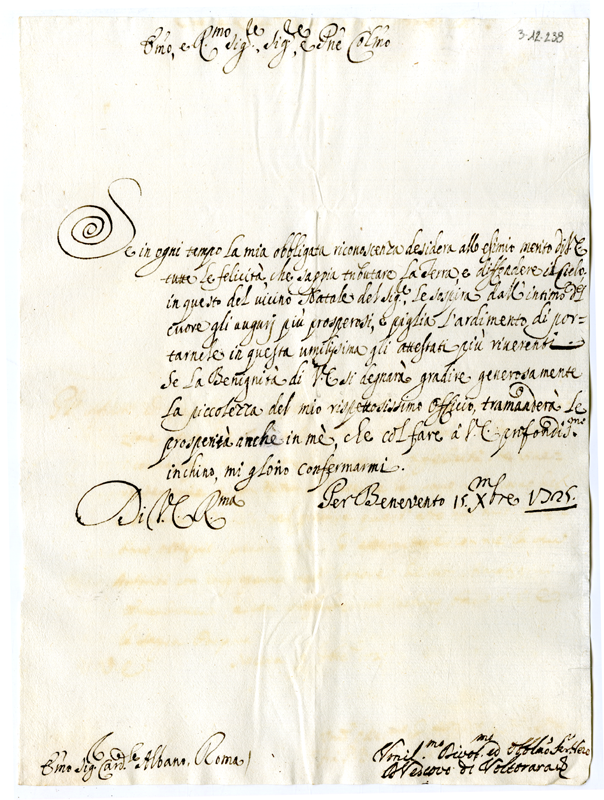 3-12-238
Emo, e Rmo Sigre, Sigre, e Pne Colmo
Se in ogni tempo la mia obbligata riconoscenza desidera allo esimio merito di V. E.
tutte le felicità, che sappia tributare la Terra, e diffondere il Cielo,
in questo del vicino Natale del Sigre le sospira dall'intimo del
cuore gli augurj più prosperosi, e piglia l'ardimento di por=
tarnele in questa umilissima gli attestati più riverenti.
Se la Benignità di V. E. si degnarà gradire generosamente
la piccolezza del mio rispettosissimo Officio, tramanderà le
prosperità anche in mè, che col fare à V. E. profondismo
inchino, mi glorio confermarmi.
Di V. E. Rma
Per Benevento 15. Xmbre 1725.
Emo Sigr Cardle Albano, Roma
Umilmo Divotmo ed Obblmo Servre Vero
Vescovo di Voltorara